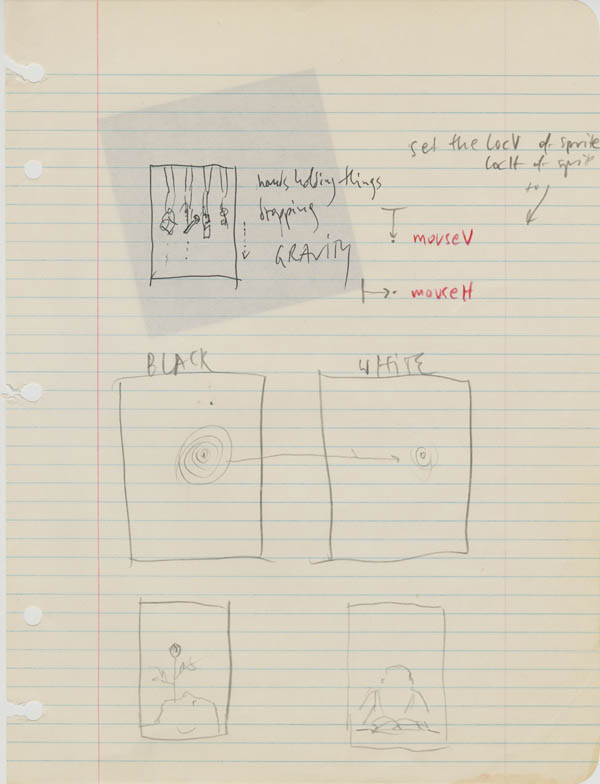 set the LocV of sprite
LocH of sprit
hands holding things
dropping
GRAVITY
mouseV
mouseH
BLACK
WHITE